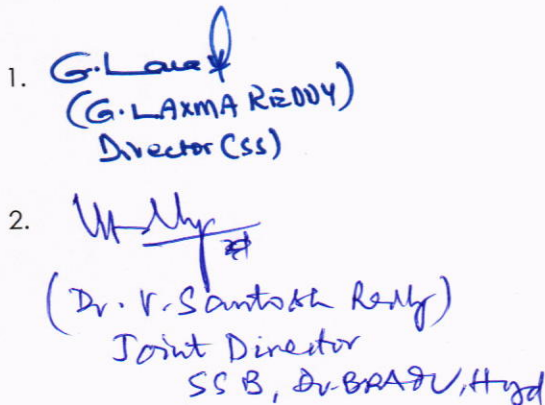 1. G.Laxm
(G.LAXMA REDDY)
Director (SS)
2.
(Dr. V. Santosh Reddy)
Joint Director
SSB, Dr.BRAOU, Hyd